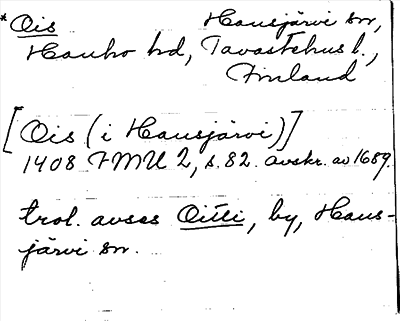 *Ois Hausjärvi sn,
Hauho hd, Tavastehus l.,
Finland
[Ois (i Hausjärvi)]
1408 FMU 2, s. 82. avskr. av 1689.
trol. avses Oitti, by, Haus-
järvi sn.